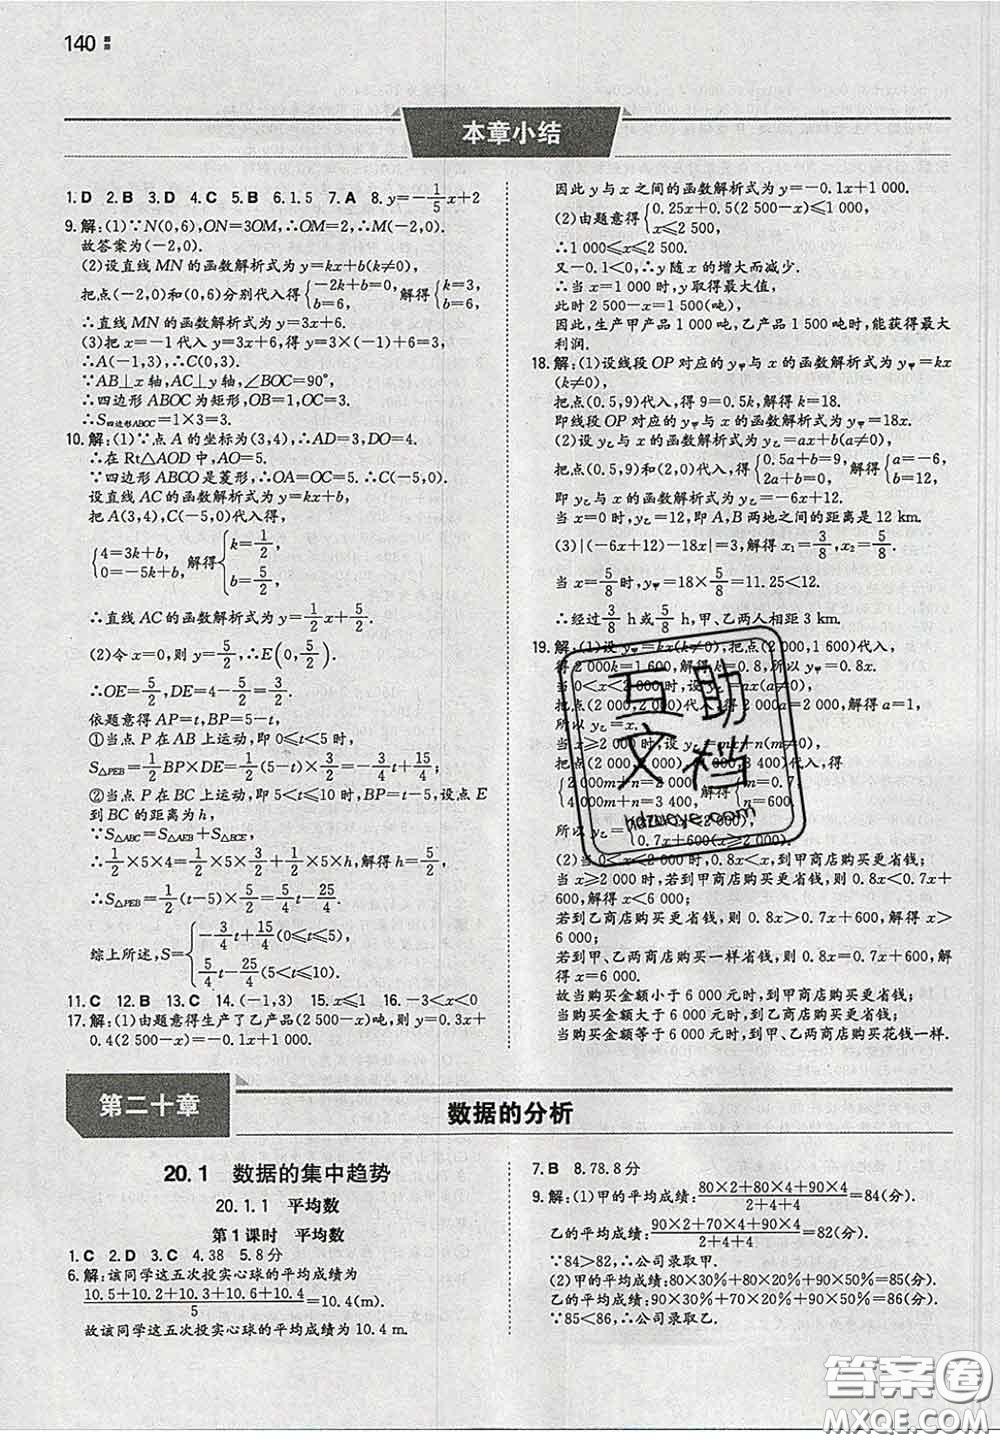 140
本章小结
1.D 2.B 3.D 4.C 5.B 6.1.5 7.A 8.y=-1/5x+2
9.解:(1)∵N(0,6),ON=3OM,∴OM=2,∴M(-2,0).
故答案为(-2,0).
(2)设直线 MN 的函数解析式为 y=kx+b(k≠0),
把点(-2,0)和(0,6)分别代入得{-2k+b=0, b=6, 解得{k=3, b=6,
∴直线 MN 的函数解析式为 y=3x+6.
(3)把 x=-1 代入 y=3x+6,得 y=3×(-1)+6=3,
∴A(-1,3),∴C(0,3).
∵AB⊥x 轴,AC⊥y 轴,∠BOC=90°,
∴四边形 ABOC 为矩形,OB=1,OC=3.
∴S四边形ABOC=1×3=3.
10.解:(1)∵点 A 的坐标为(3,4),∴AD=3,DO=4.
∴在 Rt△AOD 中,AO=5.
∵四边形 ABCO 是菱形,∴OA=OC=5,∴C(-5,0).
设直线 AC 的函数解析式为 y=kx+b,
把 A(3,4),C(-5,0)代入得,
{4=3k+b, 0=-5k+b, 解得{k=1/2, b=5/2.
∴直线 AC 的函数解析式为 y=1/2x+5/2.
(2)令 x=0,则 y=5/2,∴E(0,5/2).
∴OE=5/2,DE=4-5/2=3/2.
依题意得 AP=t,BP=5-t,
①当点 P 在 AB 上运动,即 0≤t≤5 时,
S△PEB=1/2BP×DE=1/2(5-t)×3/2=-3/4t+15/4;
②当点 P 在 BC 上运动时,即 5<t≤10 时,BP=t-5,设点 E
到 BC 的距离为 h,
∵S△ABC=S△AEB+S△BCE,
∴1/2×5×4=1/2×5×3/2+1/2×5×h,解得 h=5/2.
∴S△PEB=1/2(t-5)×5/2=5/4t-25/4.
综上所述,S={-3/4t+15/4(0≤t≤5), 5/4t-25/4(5<t≤10).
11.C 12.B 13.C 14.(-1,3) 15.x≤1 16.-3<x<0
17.解:(1)由题意得生产了乙产品(2 500-x)吨,则 y=0.3x+
0.4(2 500-x)=-0.1x+1 000.
因此 y 与 x 之间的函数解析式为 y=-0.1x+1 000.
(2)由题意得{0.25x+0.5(2 500-x)≤1 000, x≤2 500,
∴1 000≤x≤2 500.
又-0.1<0,∴y 随 x 的增大而减少.
∴当 x=1 000 时,y 取得最大值,
此时 2 500-x=1 500(吨),
因此,生产甲产品 1 000 吨,乙产品 1 500 吨时,能获得最大
利润.
18.解:(1)设线段 OP 对应的 y甲与 x 的函数解析式为 y甲=kx
(k≠0),
把点(0.5,9)代入,得 9=0.5k,解得 k=18.
即线段 OP 对应的 y甲与 x 的函数解析式为 y甲=18x.
(2)设 y乙与 x 的函数解析式为 y乙=ax+b(a≠0),
把点(0.5,9)和(2,0)代入,得{0.5a+b=9, 2a+b=0, 解得{a=-6, b=12,
即 y乙与 x 的函数解析式为 y乙=-6x+12.
当 x=0 时,y乙=12,即 A,B 两地之间的距离是 12 km.
(3)|(-6x+12)-18x|=3,解得 x1=3/8,x2=5/8.
当 x=5/8时,y甲=18×5/8=11.25<12.
∴经过3/8 h或5/8 h,甲、乙两人相距 3 km.
19.解:(1)设 y甲=kx(k≠0),把点(2 000,1 600)代入,
得 2 000k=1 600,解得 k=0.8,所以 y甲=0.8x.
当 0<x<2 000 时,设 y乙=ax(a≠0),
把点(2 000,2 000)代入,得 2 000a=2 000,解得 a=1,
所以 y乙=x.
当 x≥2 000 时,设 y乙=mx+n(m≠0),
把点(2 000,2 000),(4 000,3 400)代入,得
{2 000m+n=2 000, 4 000m+n=3 400, 解得{m=0.7, n=600.
所以 y乙={x(0<x<2 000), 0.7x+600(x≥2 000).
(2)当 0<x<2 000 时,0.8x<x,到甲商店购买更省钱;
当 x≥2 000 时,若到甲商店购买更省钱,则 0.8x<0.7x+
600,解得 x<6 000;
若到乙商店购买更省钱,则 0.8x>0.7x+600,解得 x>
6 000;
若到甲、乙两商店购买一样省钱,则 0.8x=0.7x+600,解
得 x=6 000.
故当购买金额小于 6 000 元时,到甲商店购买更省钱;
当购买金额大于 6 000 元时,到乙商店购买更省钱;
当购买金额等于 6 000 元时,到甲、乙两商店购买花钱一样.
互助
文档
hdzuoye.com
第二十章
数据的分析
20.1 数据的集中趋势
20.1.1 平均数
第1课时 平均数
1.C 2.D 3.C 4.38 5.8分
6.解:该同学这五次投实心球的平均成绩为
(10.5+10.2+10.3+10.6+10.4)/5=10.4(m).
故该同学这五次投实心球的平均成绩为 10.4 m.
7.B 8.78.8分
9.解:(1)甲的平均成绩:(80×2+80×4+90×4)/(2+4+4)=84(分).
乙的平均成绩:(90×2+70×4+90×4)/(2+4+4)=82(分).
∵84>82,∴公司录取甲.
(2)甲的平均成绩:80×30%+80×20%+90×50%=85(分).
乙的平均成绩:90×30%+70×20%+90×50%=86(分).
∵85<86,∴公司录取乙.
答案圈
MXQE.COM